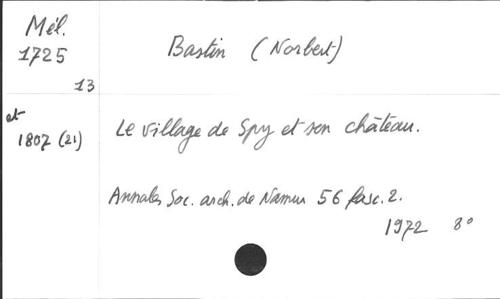 Mél.
1725
13
et
1807 (21)
Bastin (Norbert)
Le village de Spy et son château.
Annales Soc. arch. de Namur 56 fasc. 2.
1972 8°